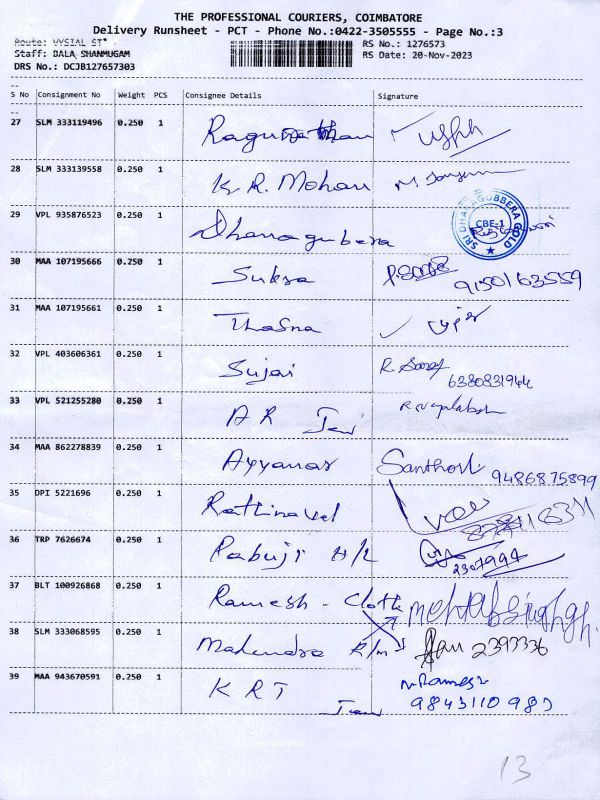 THE PROFESSIONAL COURIERS, COIMBATORE
Delivery Runsheet - PCT - Phone No.:0422-3505555 - Page No.:3
Route: VYSIAL ST
RS No.: 1276573
Staff: BALA SHANMUGAM
RS Date: 20-Nov-2023
DRS No.: DCJB127657303
S No Consignment No Weight PCS Consignee Details Signature
27 SLM 333119496 0.250 1
28 SLM 333139558 0.250 1 K. R. Mohan
29 VPL 935876523 0.250 1 Dhanagubera
SRI DHANAGUBBERA GOLD CBE-1
30 MAA 107195666 0.250 1 Suksa 9150163559
31 MAA 107195661 0.250 1 Thasna
32 VPL 403606361 0.250 1 Sujai R.
6380831944
33 VPL 521255280 0.250 1 A R
34 MAA 862278839 0.250 1 Ayyanar Santhosh 9486875899
35 DPI 5221696 0.250 1 Rathinavel
36 TRP 7626674 0.250 1 Babuji H/L
2307994
37 BLT 100926868 0.250 1 Ramesh - Cloth
38 SLM 333068595 0.250 1 Mahendra R/m 2393336
39 MAA 943670591 0.250 1 K R T Ramesh
9843110983
13